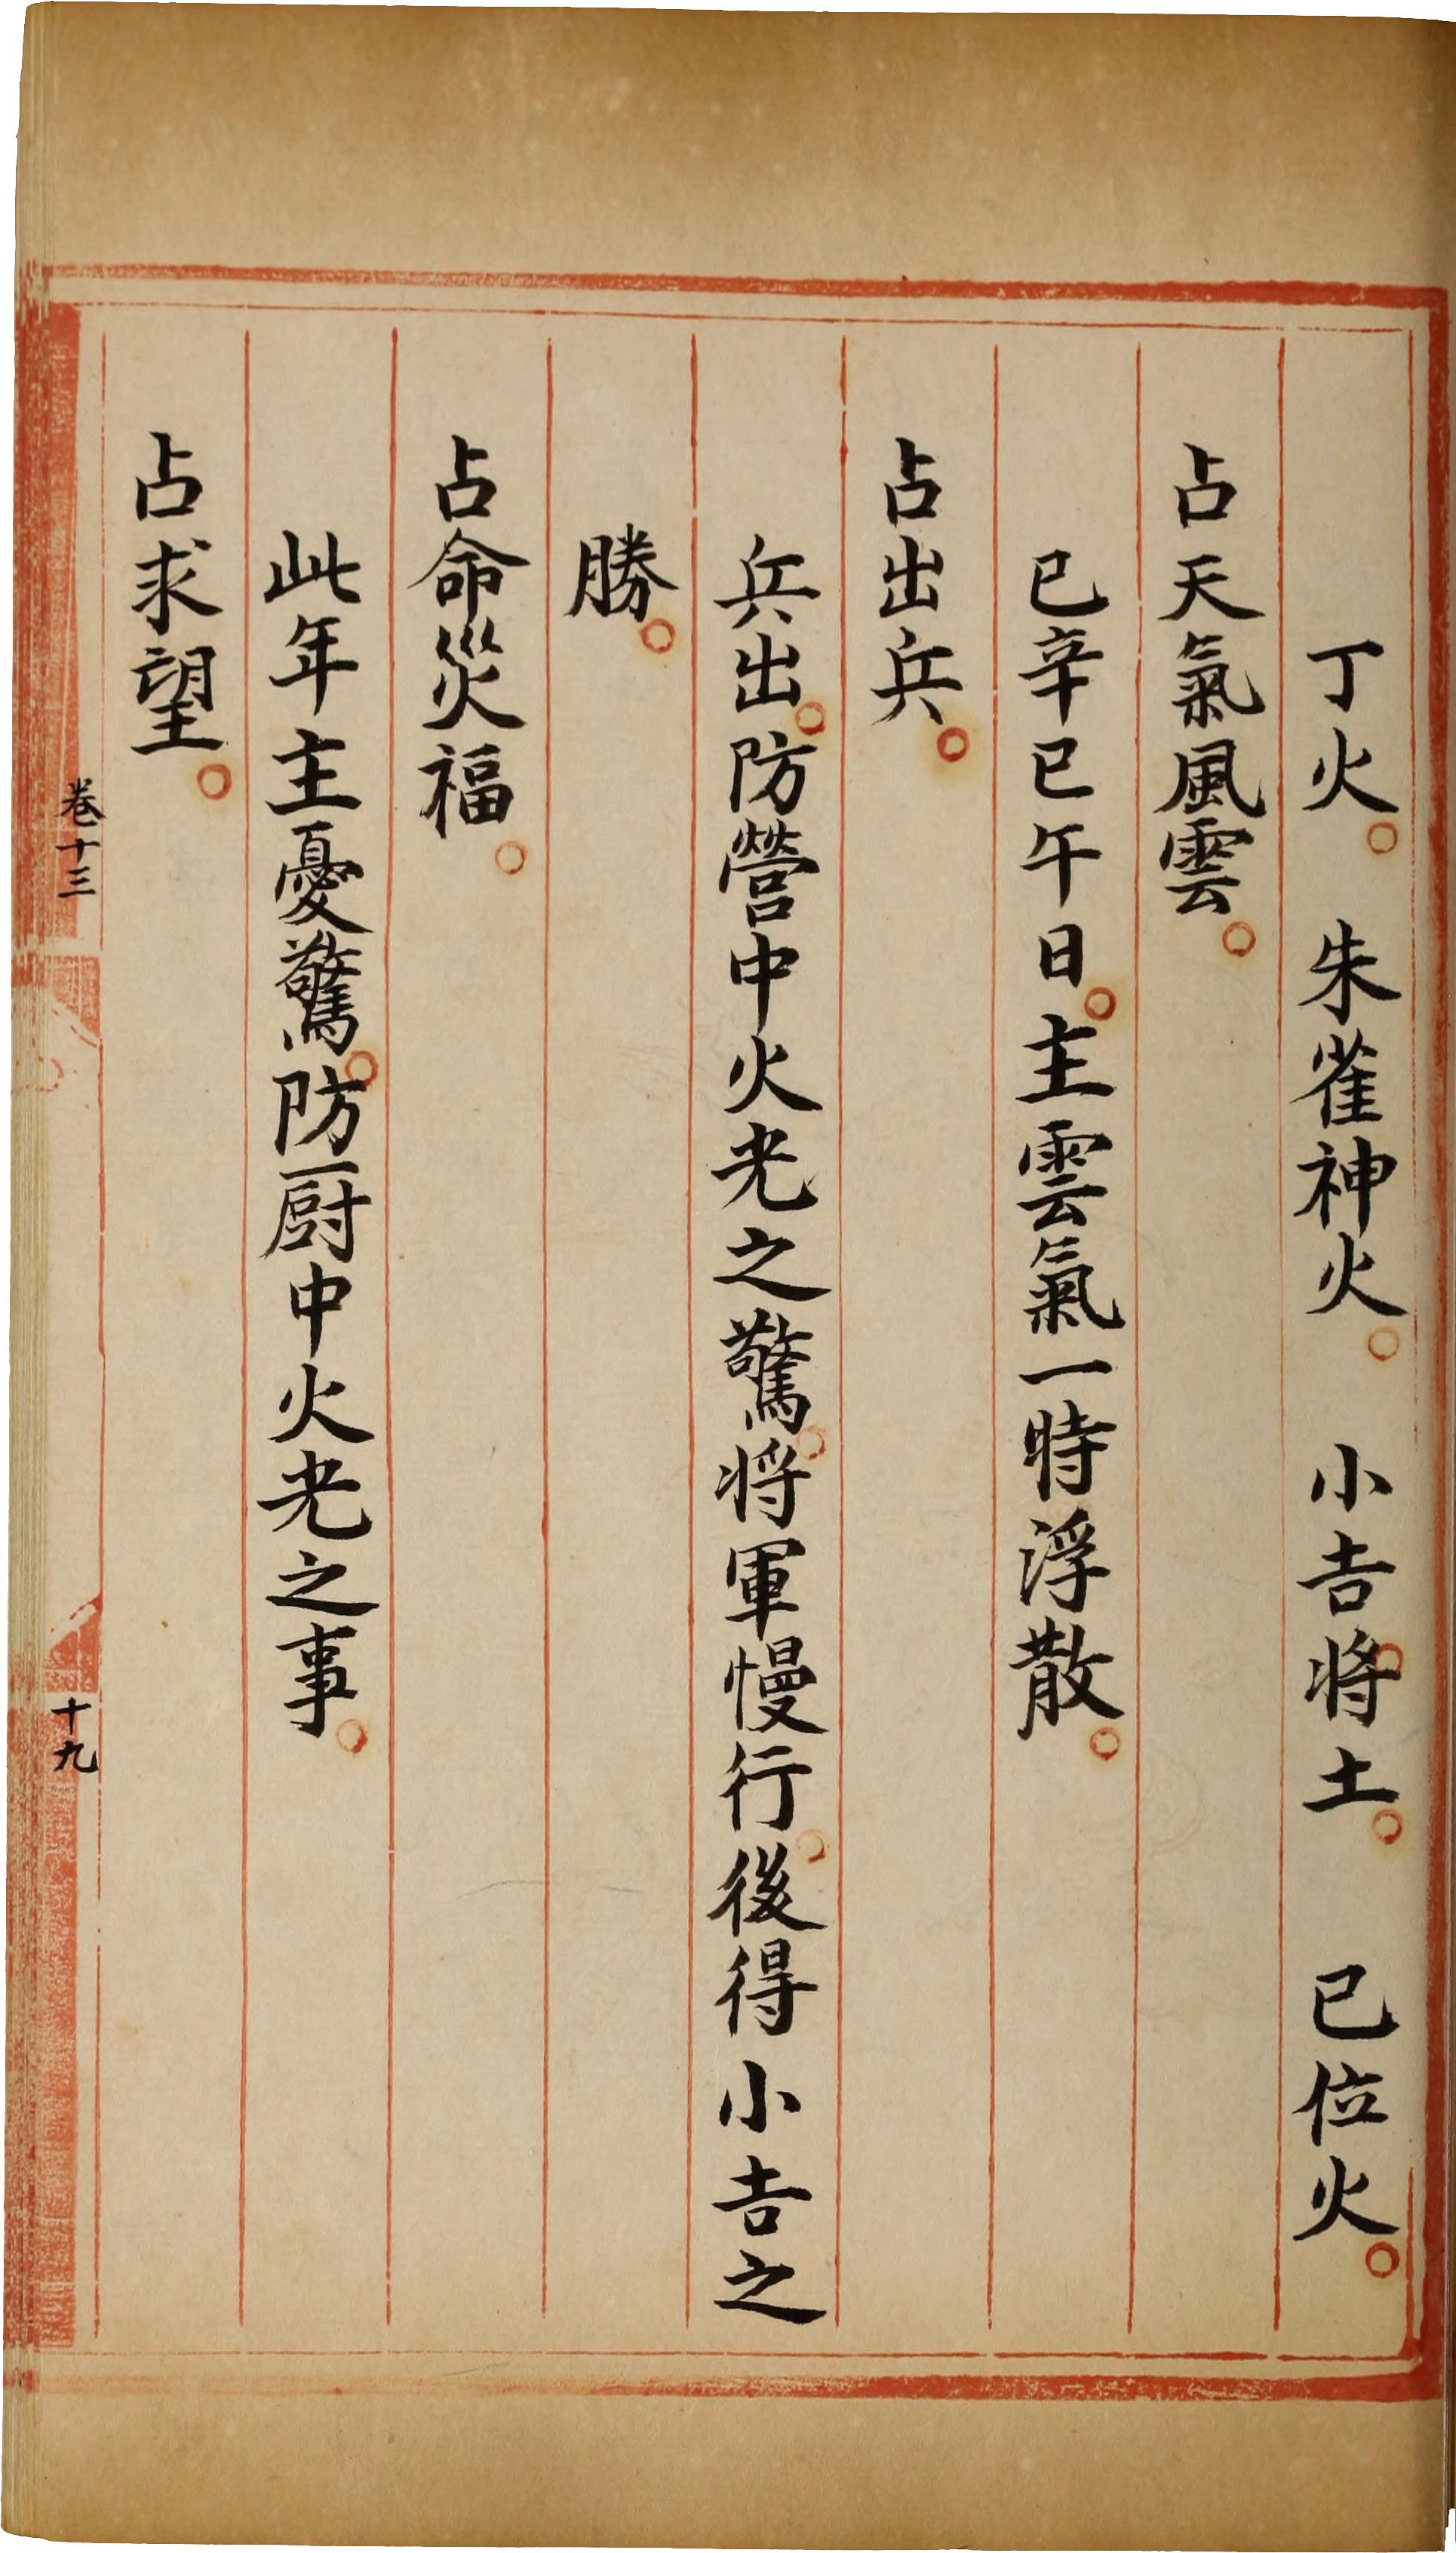 丁火。 朱雀神火。 小吉。將土。 巳位火。
占天氣風雲。
巳辛巳午日。主雲氣一時浮散。
占出兵。
兵出。防營中火光之驚。將軍慢行。後得小吉之
勝。
占命災福。
此年主憂驚。防厨中火光之事。
占求望。
卷十三
十九